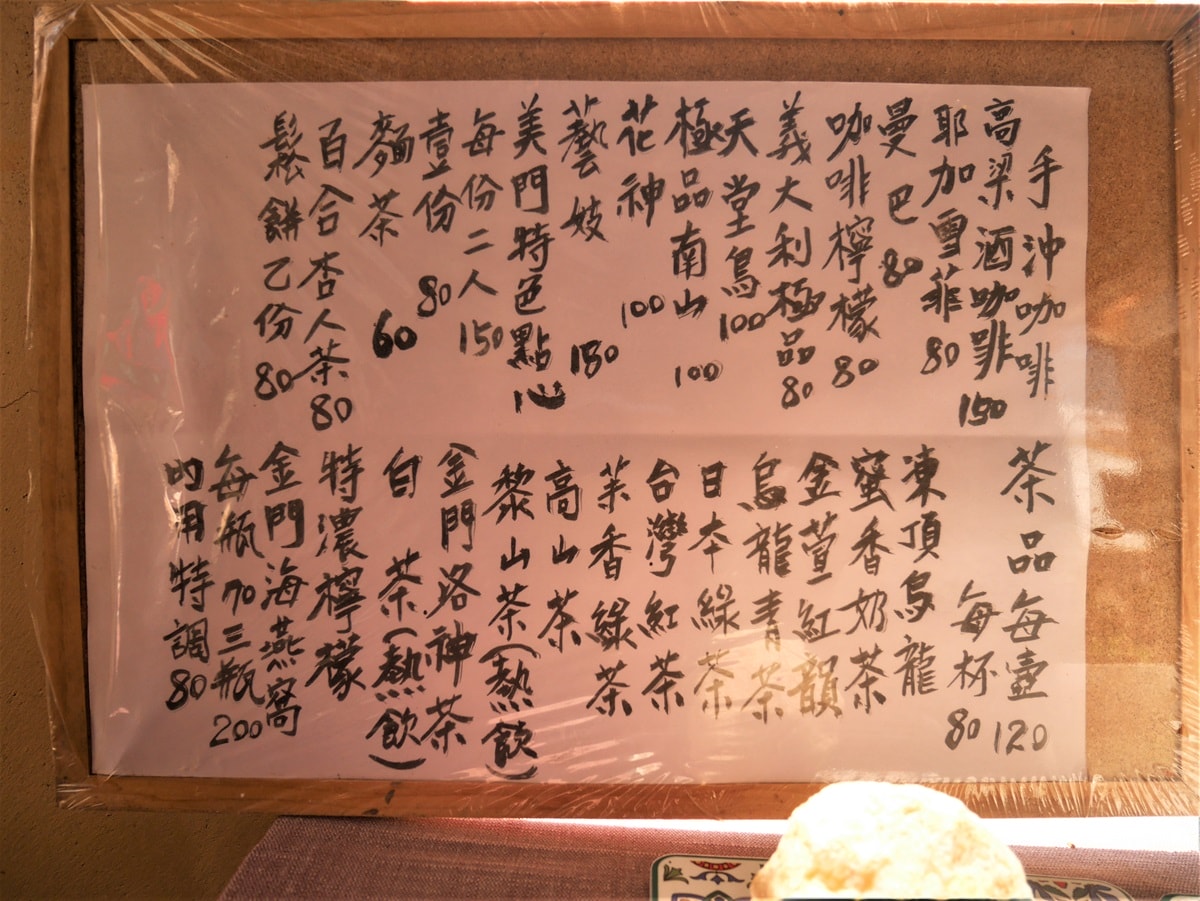 手沖咖啡
高梁酒咖啡 150
耶加雪菲 80
曼巴 80
咖啡檸檬 80
義大利極品 80
天堂鳥 100
極品南山 100
花神 100
藝妓 150
美門特色點心
每份二人 150
壹份 80
麵茶 60
百合杏人茶 80
鬆餅乙份 80
茶品每壺 120
每杯 80
凍頂烏龍
蜜香奶茶
金萱紅韻
烏龍青茶
日本綠茶
台灣紅茶
茉香綠茶
高山茶
黎山茶(熱飲)
金門洛神茶
白茶(熱飲)
特濃檸檬
金門海燕窩
每瓶70三瓶200
特調80